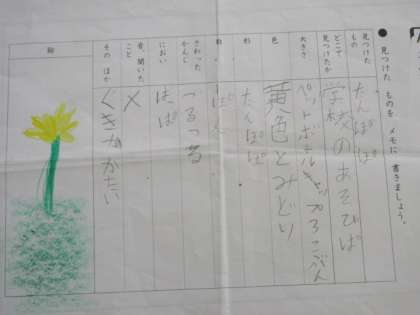 ● 見つけた ものを メモに 書きましょう。
見つけた もの
たんぽぽ
どこで 見つけたか
学校のあそびば
大きさ
色
黄色とみどり
形
たんぽぽ
数
さわった かんじ
つるつる
におい
はっぱ
音、聞いた こと
×
その ほか
くきがかたい
絵